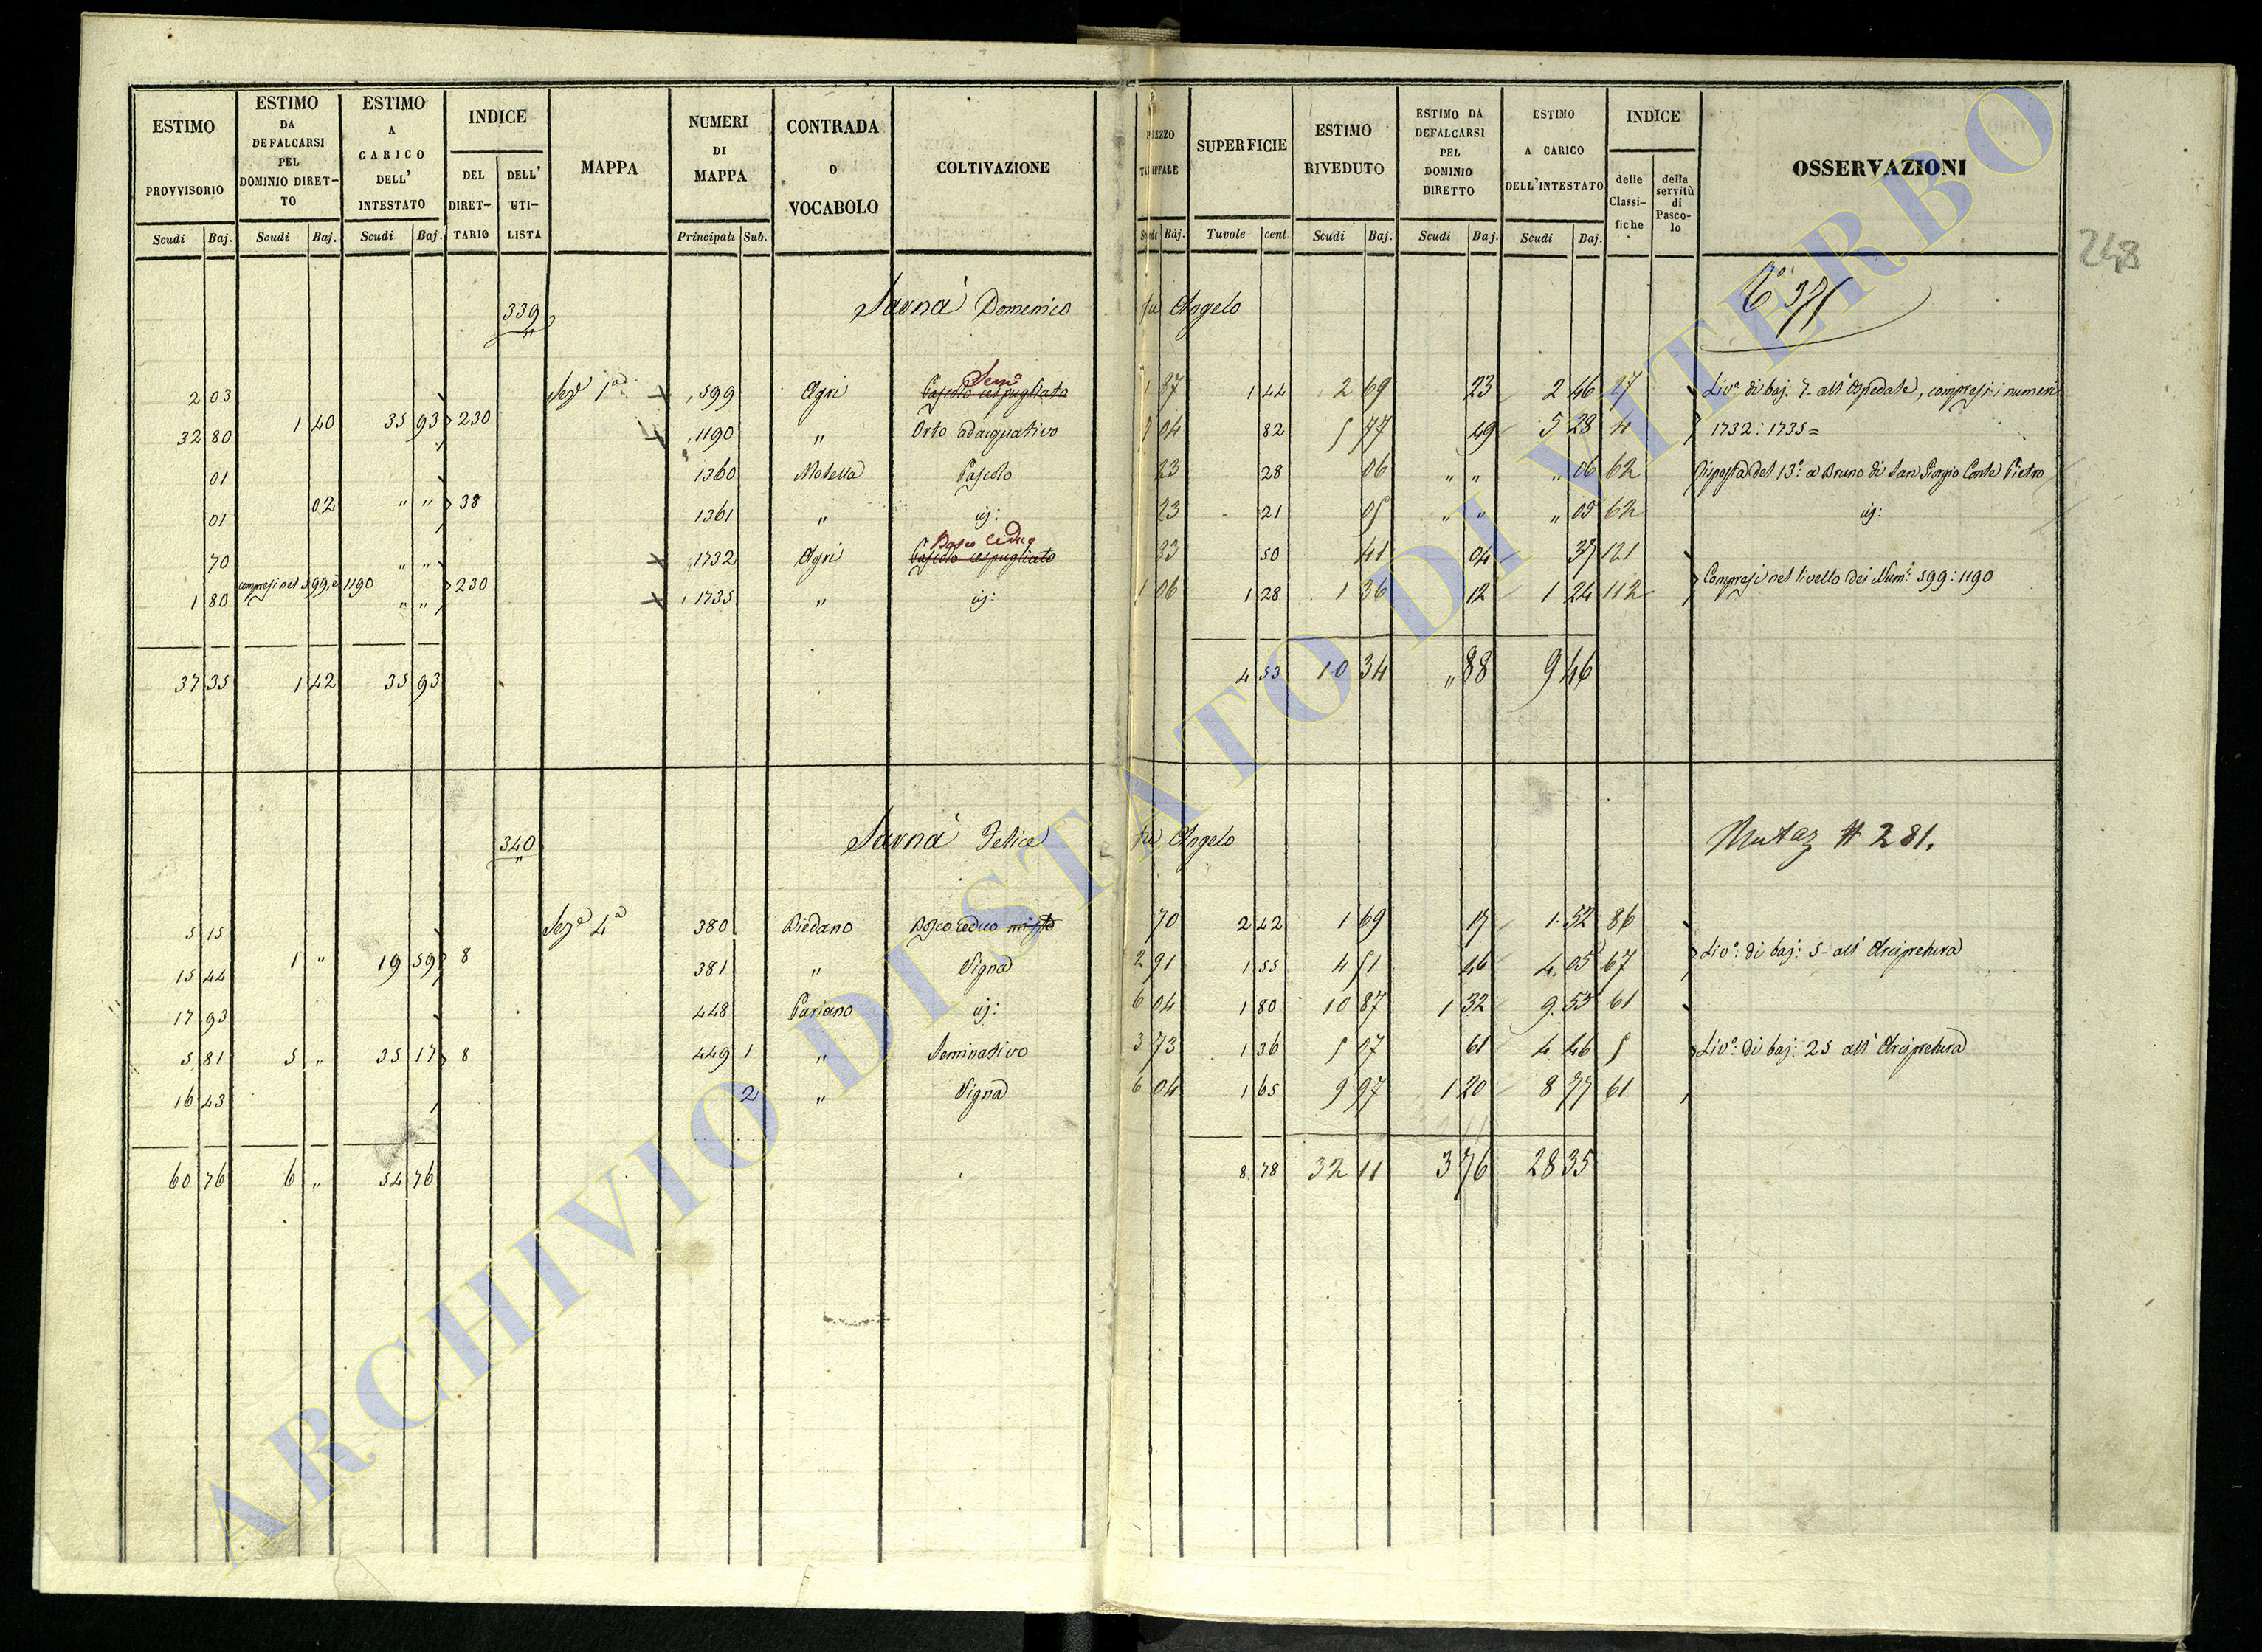 ESTIMO PROVVISORIO Scudi Baj.
ESTIMO DA DEFALCARSI PEL DOMINIO DIRET-TO Scudi Baj.
ESTIMO A CARICO DELL' INTESTATO Scudi Baj.
INDICE DEL DIRET-TARIO DELL' UTI-LISTA
MAPPA
NUMERI DI MAPPA Principali Sub.
CONTRADA O VOCABOLO
COLTIVAZIONE
PREZZO TARIFFALE Scudi Baj.
SUPERFICIE Tavole cent
ESTIMO RIVEDUTO Scudi Baj.
ESTIMO DA DEFALCARSI PEL DOMINIO DIRETTO Scudi Baj.
ESTIMO A CARICO DELL'INTESTATO Scudi Baj.
INDICE delle Classi-fiche della servitù di Pasco-lo
OSSERVAZIONI
248
339 Savnà Domenico fu Angelo
2 03 Sez.e 1a 599 Agri Pascolo cespugliato Sem.o 1 87 1 44 2 69 23 2 46 27 Liv.o di baj: 7 all'Ospedale, compresi i numeri
1 40 35 93 230
32 80 1190 " Orto adacquativo 7 04 82 5 77 49 5 28 4 1732: 1735=
01 1360 Motella Pascolo 23 28 06 " " " 06 62 del 13.o a Bruno di San Giorgio Conte Pietro
02 " " 38
01 1361 " id: 23 21 05 " " " 05 62 id:
70 " " 1732 Agri Pascolo cespugliato Bosco Ceduo 83 50 41 04 37 121
compresi nel 599, e 1190 230 Compresi nel livello dei Num.i 599: 1190
1 80 " " 1735 " id: 1 06 1 28 1 36 12 1 24 112
37 35 1 42 35 93 4 53 10 34 " 88 9 46
340 Savnà Felice fu Angelo Mutaz # 281.
5 15 Sez.e 4a 380 Piedano Bosco ceduo misto 70 2 42 1 69 17 1 52 86
1 " 19 59 8 Liv.o: di baj: 5 - all' Arcipretura
15 44 381 " Vigna 2 91 1 55 4 51 46 4 05 67
17 93 448 Pariano id: 6 04 1 80 10 87 1 32 9 55 61
5 81 5 " 35 17 8 449 1 " Seminativo 3 73 1 36 5 07 61 4 46 5 Liv.o: di baj: 25 all' Arcipretura
16 43 2 " Vigna 6 04 1 65 9 97 1 20 8 77 61
60 76 6 " 54 76 8 78 32 11 3 76 28 35
ARCHIVIO DI STATO DI VITERBO